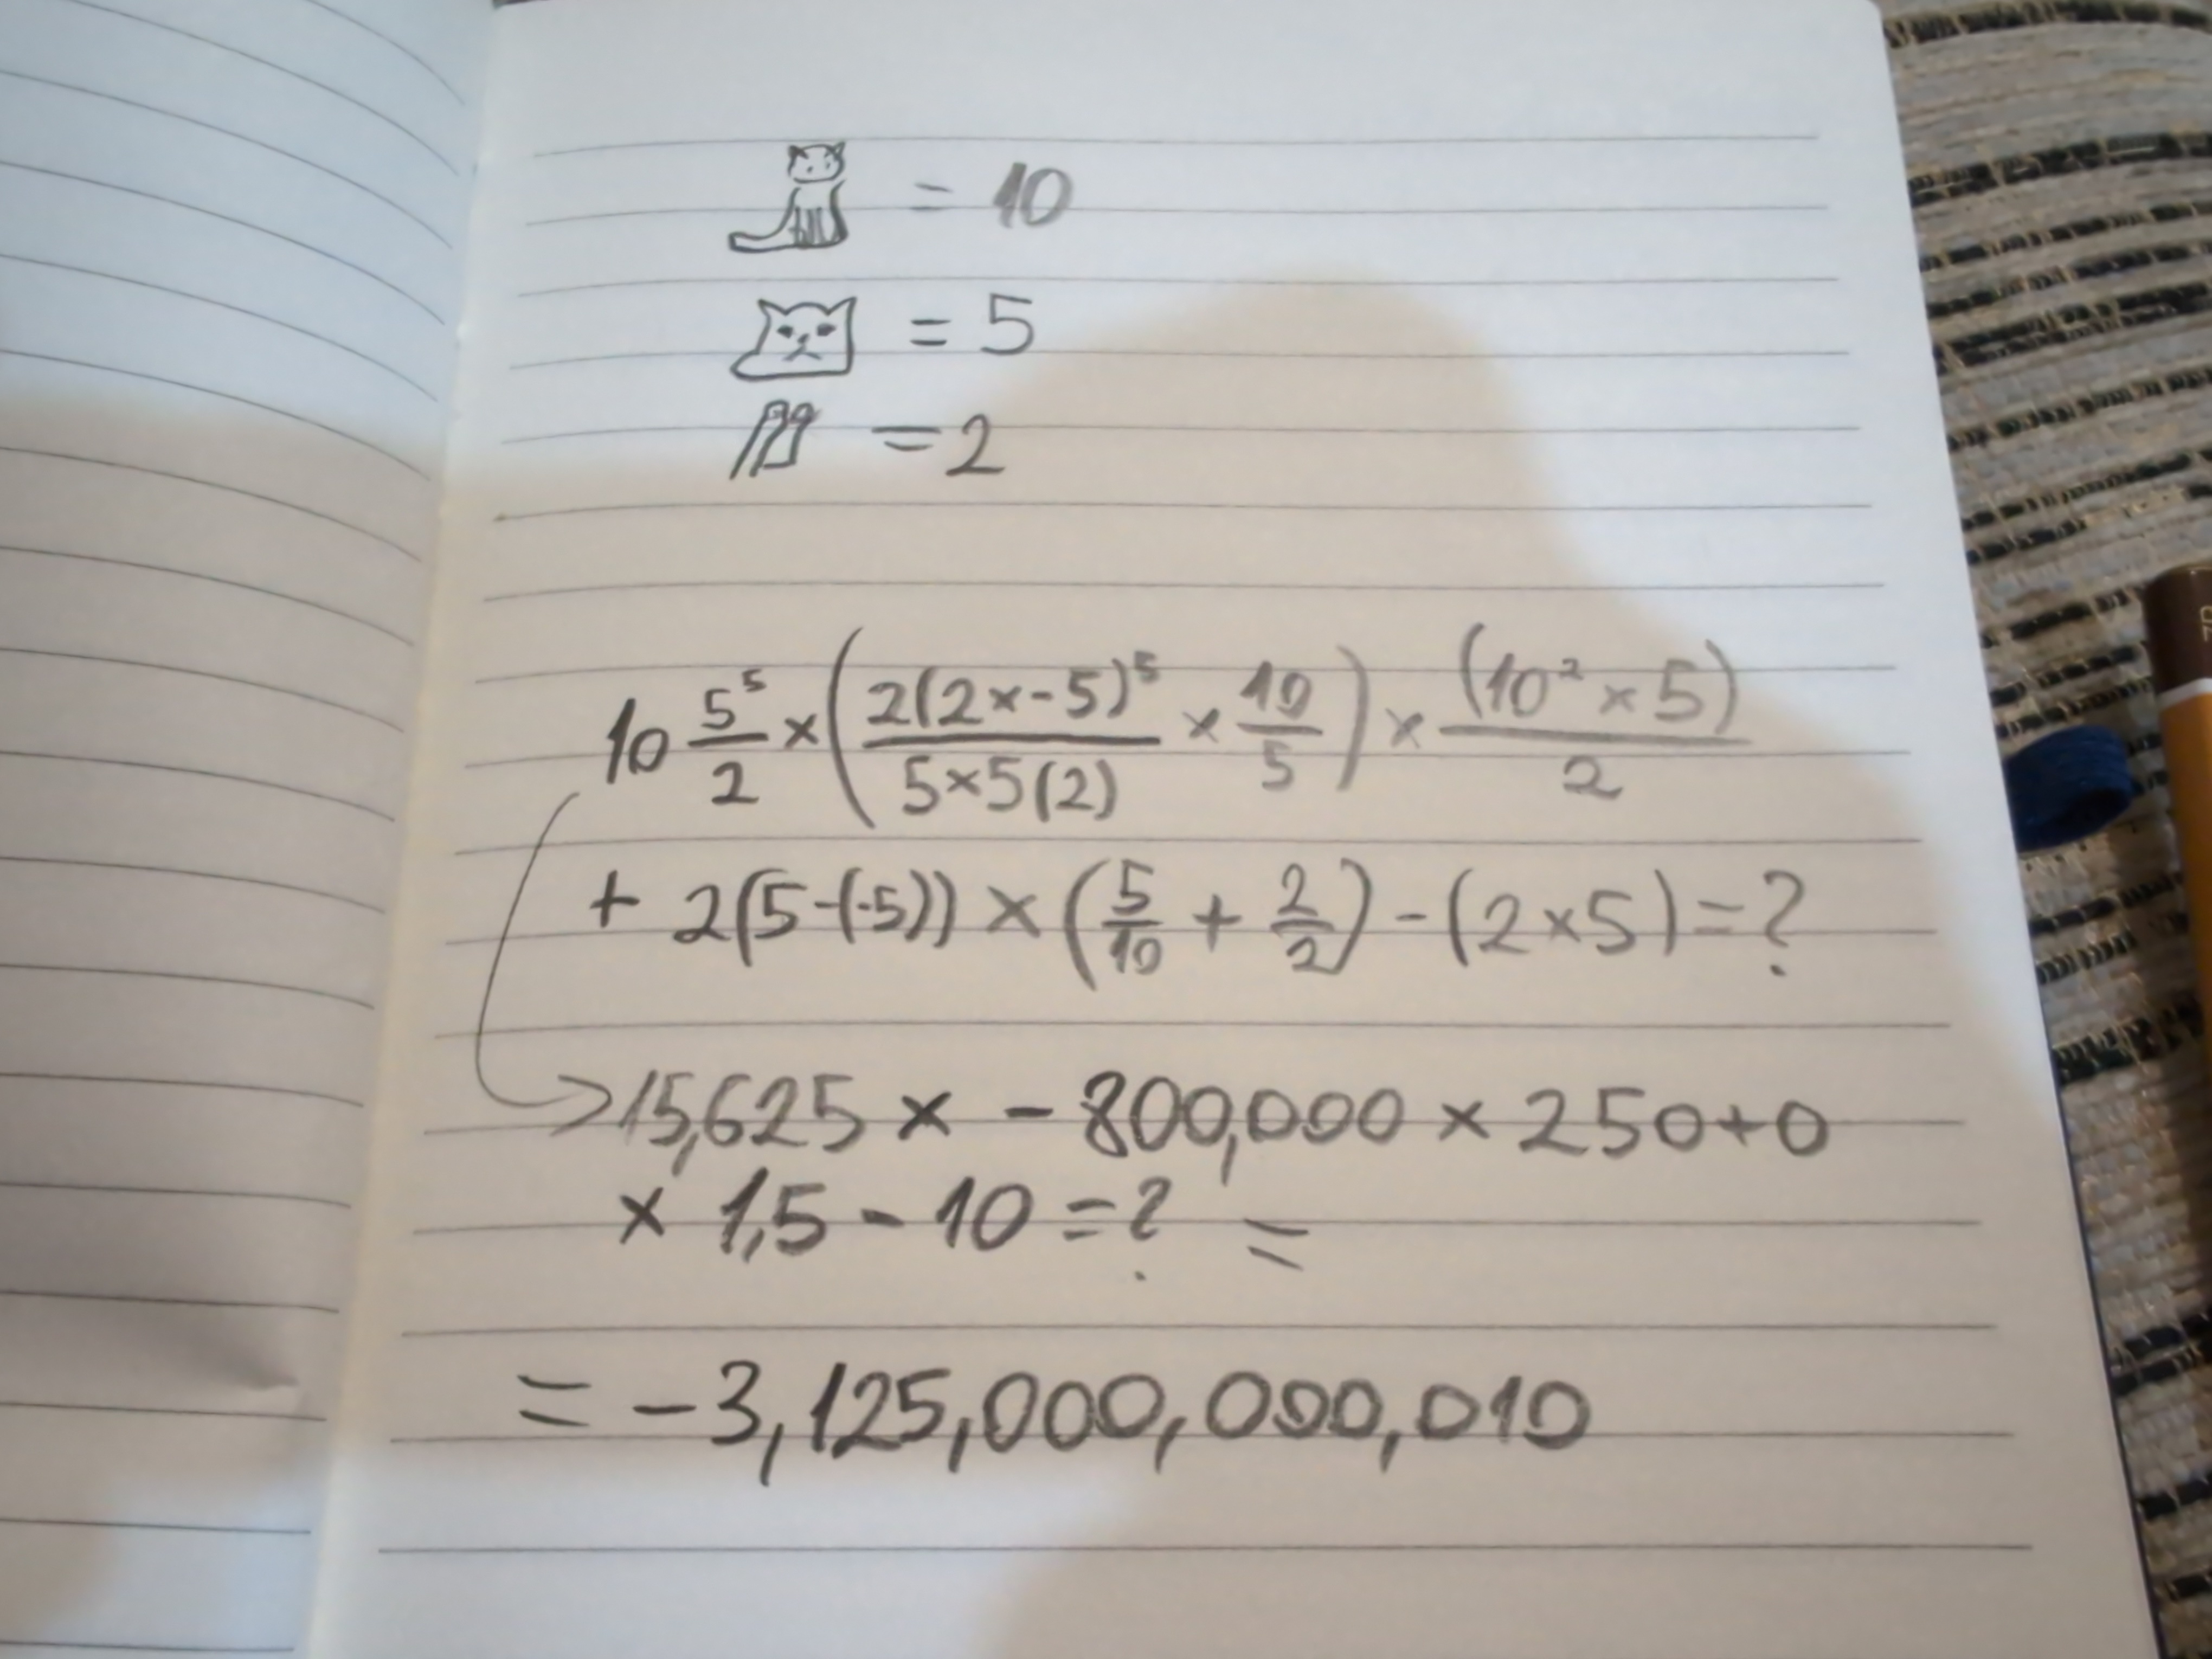 = 10
= 5
= 2
10 5⁵/2 × (2(2×-5)⁵/5×5(2) × 10/5) × (10² × 5)/2
+ 2(5-(-5)) × (5/10 + 2/2) - (2×5) = ?
→ 15,625 × - 800,000 × 250+0
× 1,5 - 10 = ? =
= -3,125,000,000,010